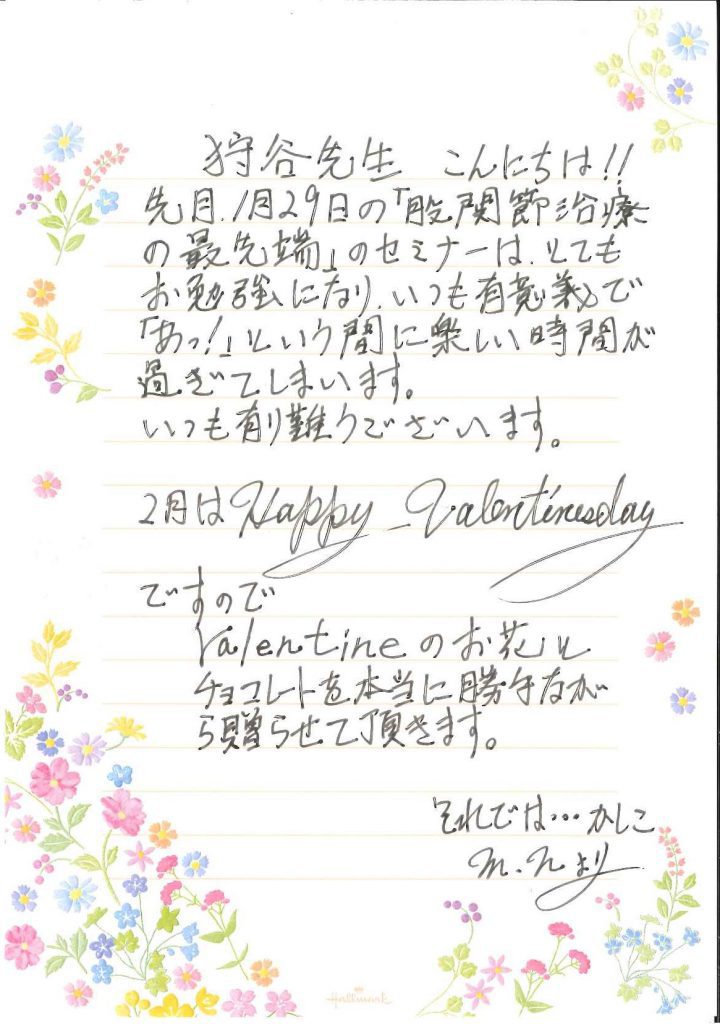 狩谷先生 こんにちは!!
先月、1月29日の「股関節治療
の最先端」のセミナーは、とても
お勉強になり、いつも有意義で
「あっ!」という間に楽しい時間が
過ぎてしまいます。
いつも有り難うございます。
2月は Happy - Valentinesday
ですので
Valentineのお花と
チョコレートを本当に勝手なが
ら贈らせて頂きます。
それでは…かしこ
m.nより
Hallmark